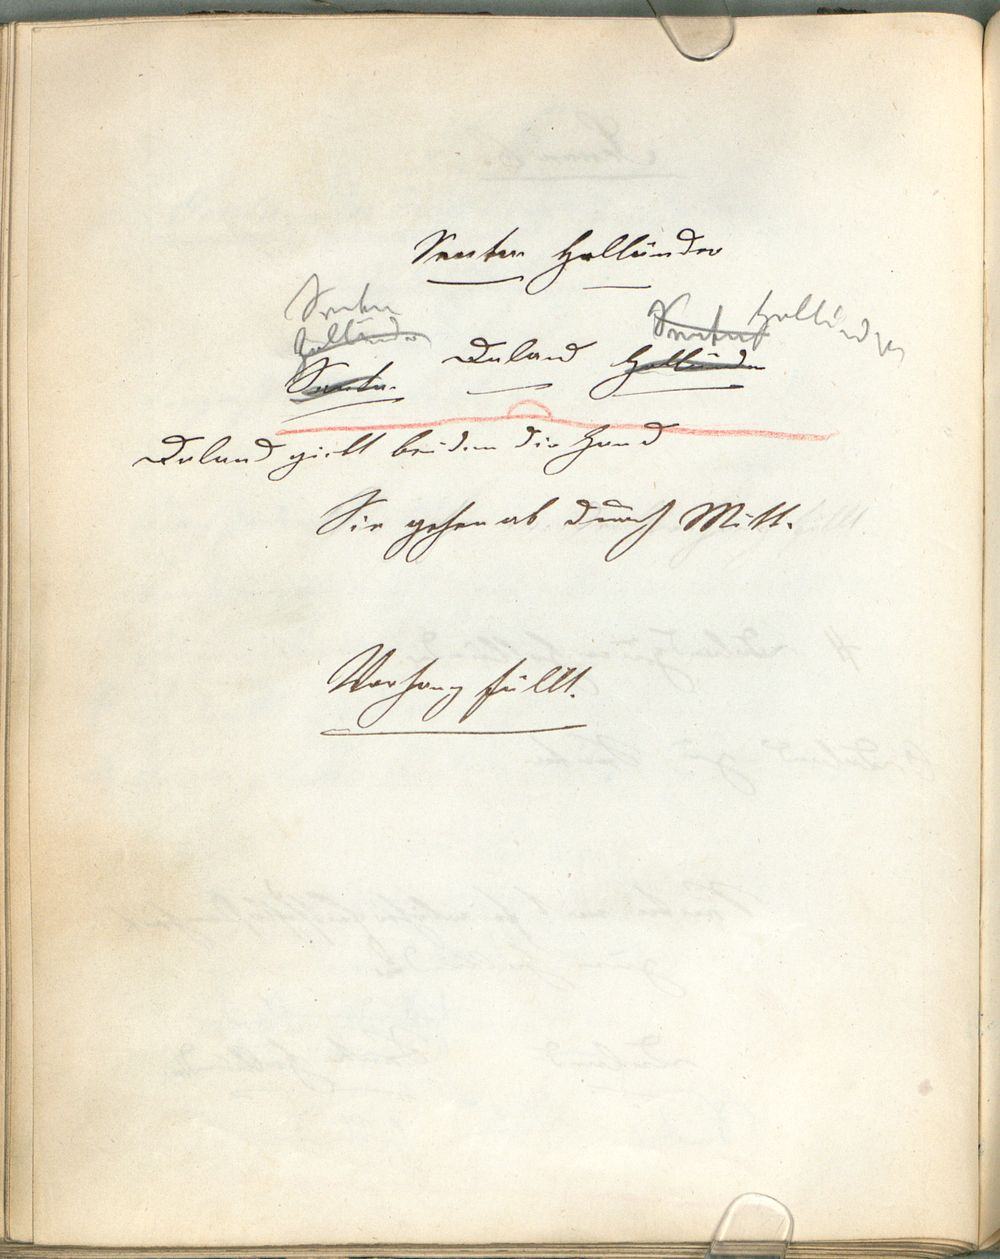 Senta Holländer
Senta
Holländer
Senta Holländer
Senta Daland Holländer
Daland giebt beiden die Hand
Sie gehen ab durch Mitt.
Vorhang fällt.